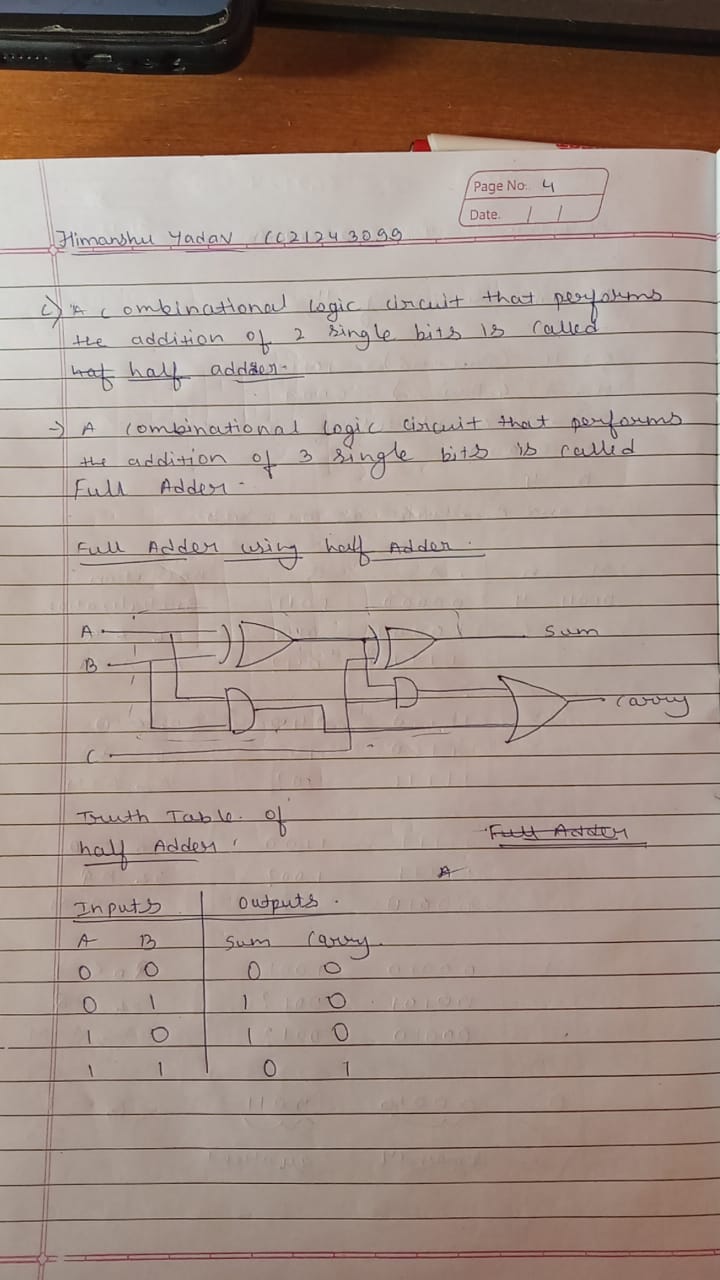 Page No. 4
Date. / /
Himanshu Yadav CC21243099
c) A Combinational logic circuit that performs
the addition of 2 single bits is called
haf half adder.
→ A Combinational logic circuit that performs
the addition of 3 single bits is called
Full Adder.
Full Adder using half Adder.
A
Sum
B
Carry
C
Truth Table of
half Adder.
Full Adder
A
Inputs Outputs.
A B Sum Carry.
0 0 0 0
0 1 1 0
1 0 1 0
1 1 0 1